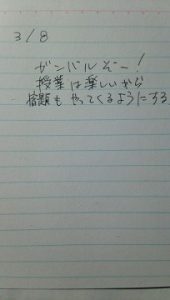 3/8
ガンバルぞー！
授業は楽しいから
宿題もやってくるようにする